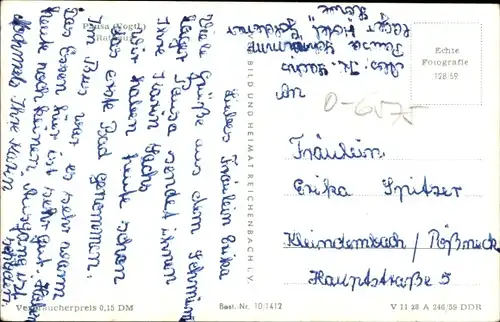 Pausa (Vogtl.)
Rathaus
Liebes Fräulein Erika
Viele Grüße aus dem Schwimm
lager Pausa sendet ihnen
Ihre Karin Sachs
Wir haben heute schon
das erste Bad genommen.
Im Bus war es sehr warm
Das Essen hier ist sehr gut. Haben
heute noch keinen Ausgang ist
verboten.
Nochmals Ihre Karin
Abs.: K. Sachs
Pausa Schwimm
lager Hotel Goldener
Löwe
BILD UND HEIMAT REICHENBACH I. V.
Echte
Fotografie
128/59
An
0-6575
Fräulein
Erika Spitzer
Kleindembach / Pößneck
Hauptstraße 5
Verbraucherpreis 0,15 DM
Best.-Nr. 10/1412
V 11 28 A 246/59 DDR